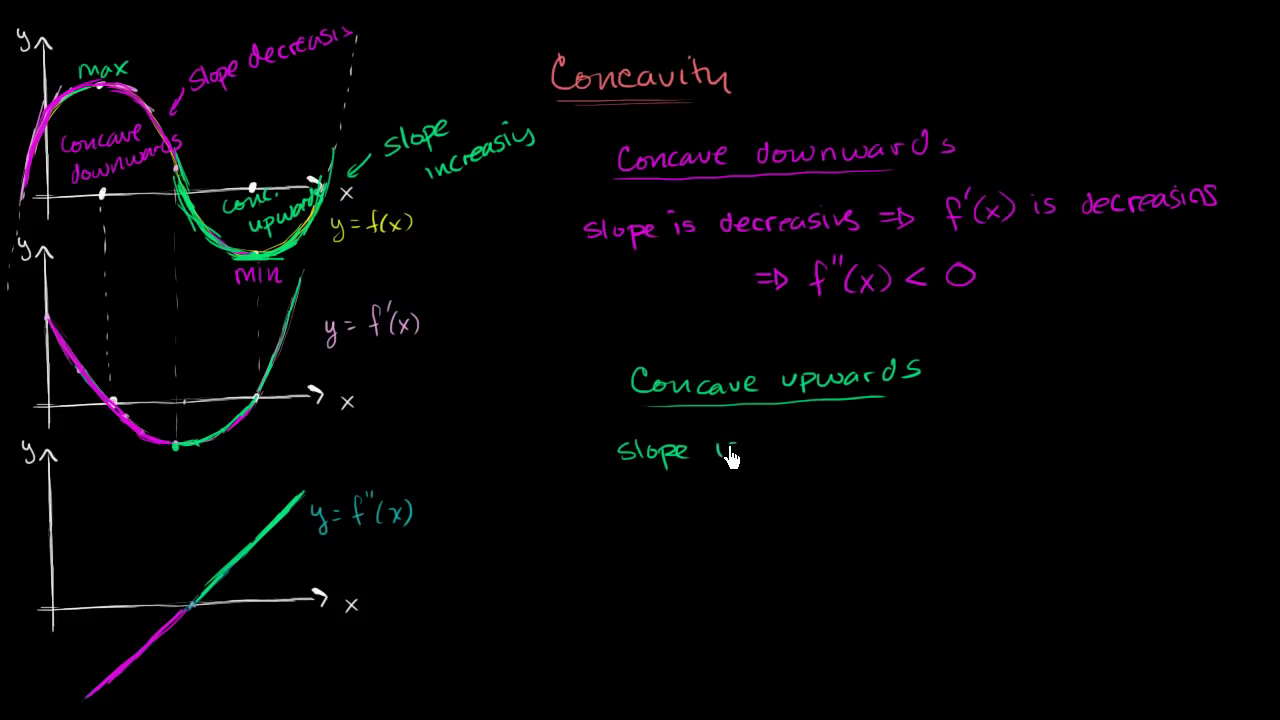 y
max
slope decreasin
concave
downwards
slope
increasing
conc.
upwards
x
y = f(x)
min
y
y = f'(x)
x
y
y = f''(x)
x
Concavity
Concave downwards
slope is decreasing ⇒ f'(x) is decreasing
⇒ f''(x) < 0
Concave upwards
slope